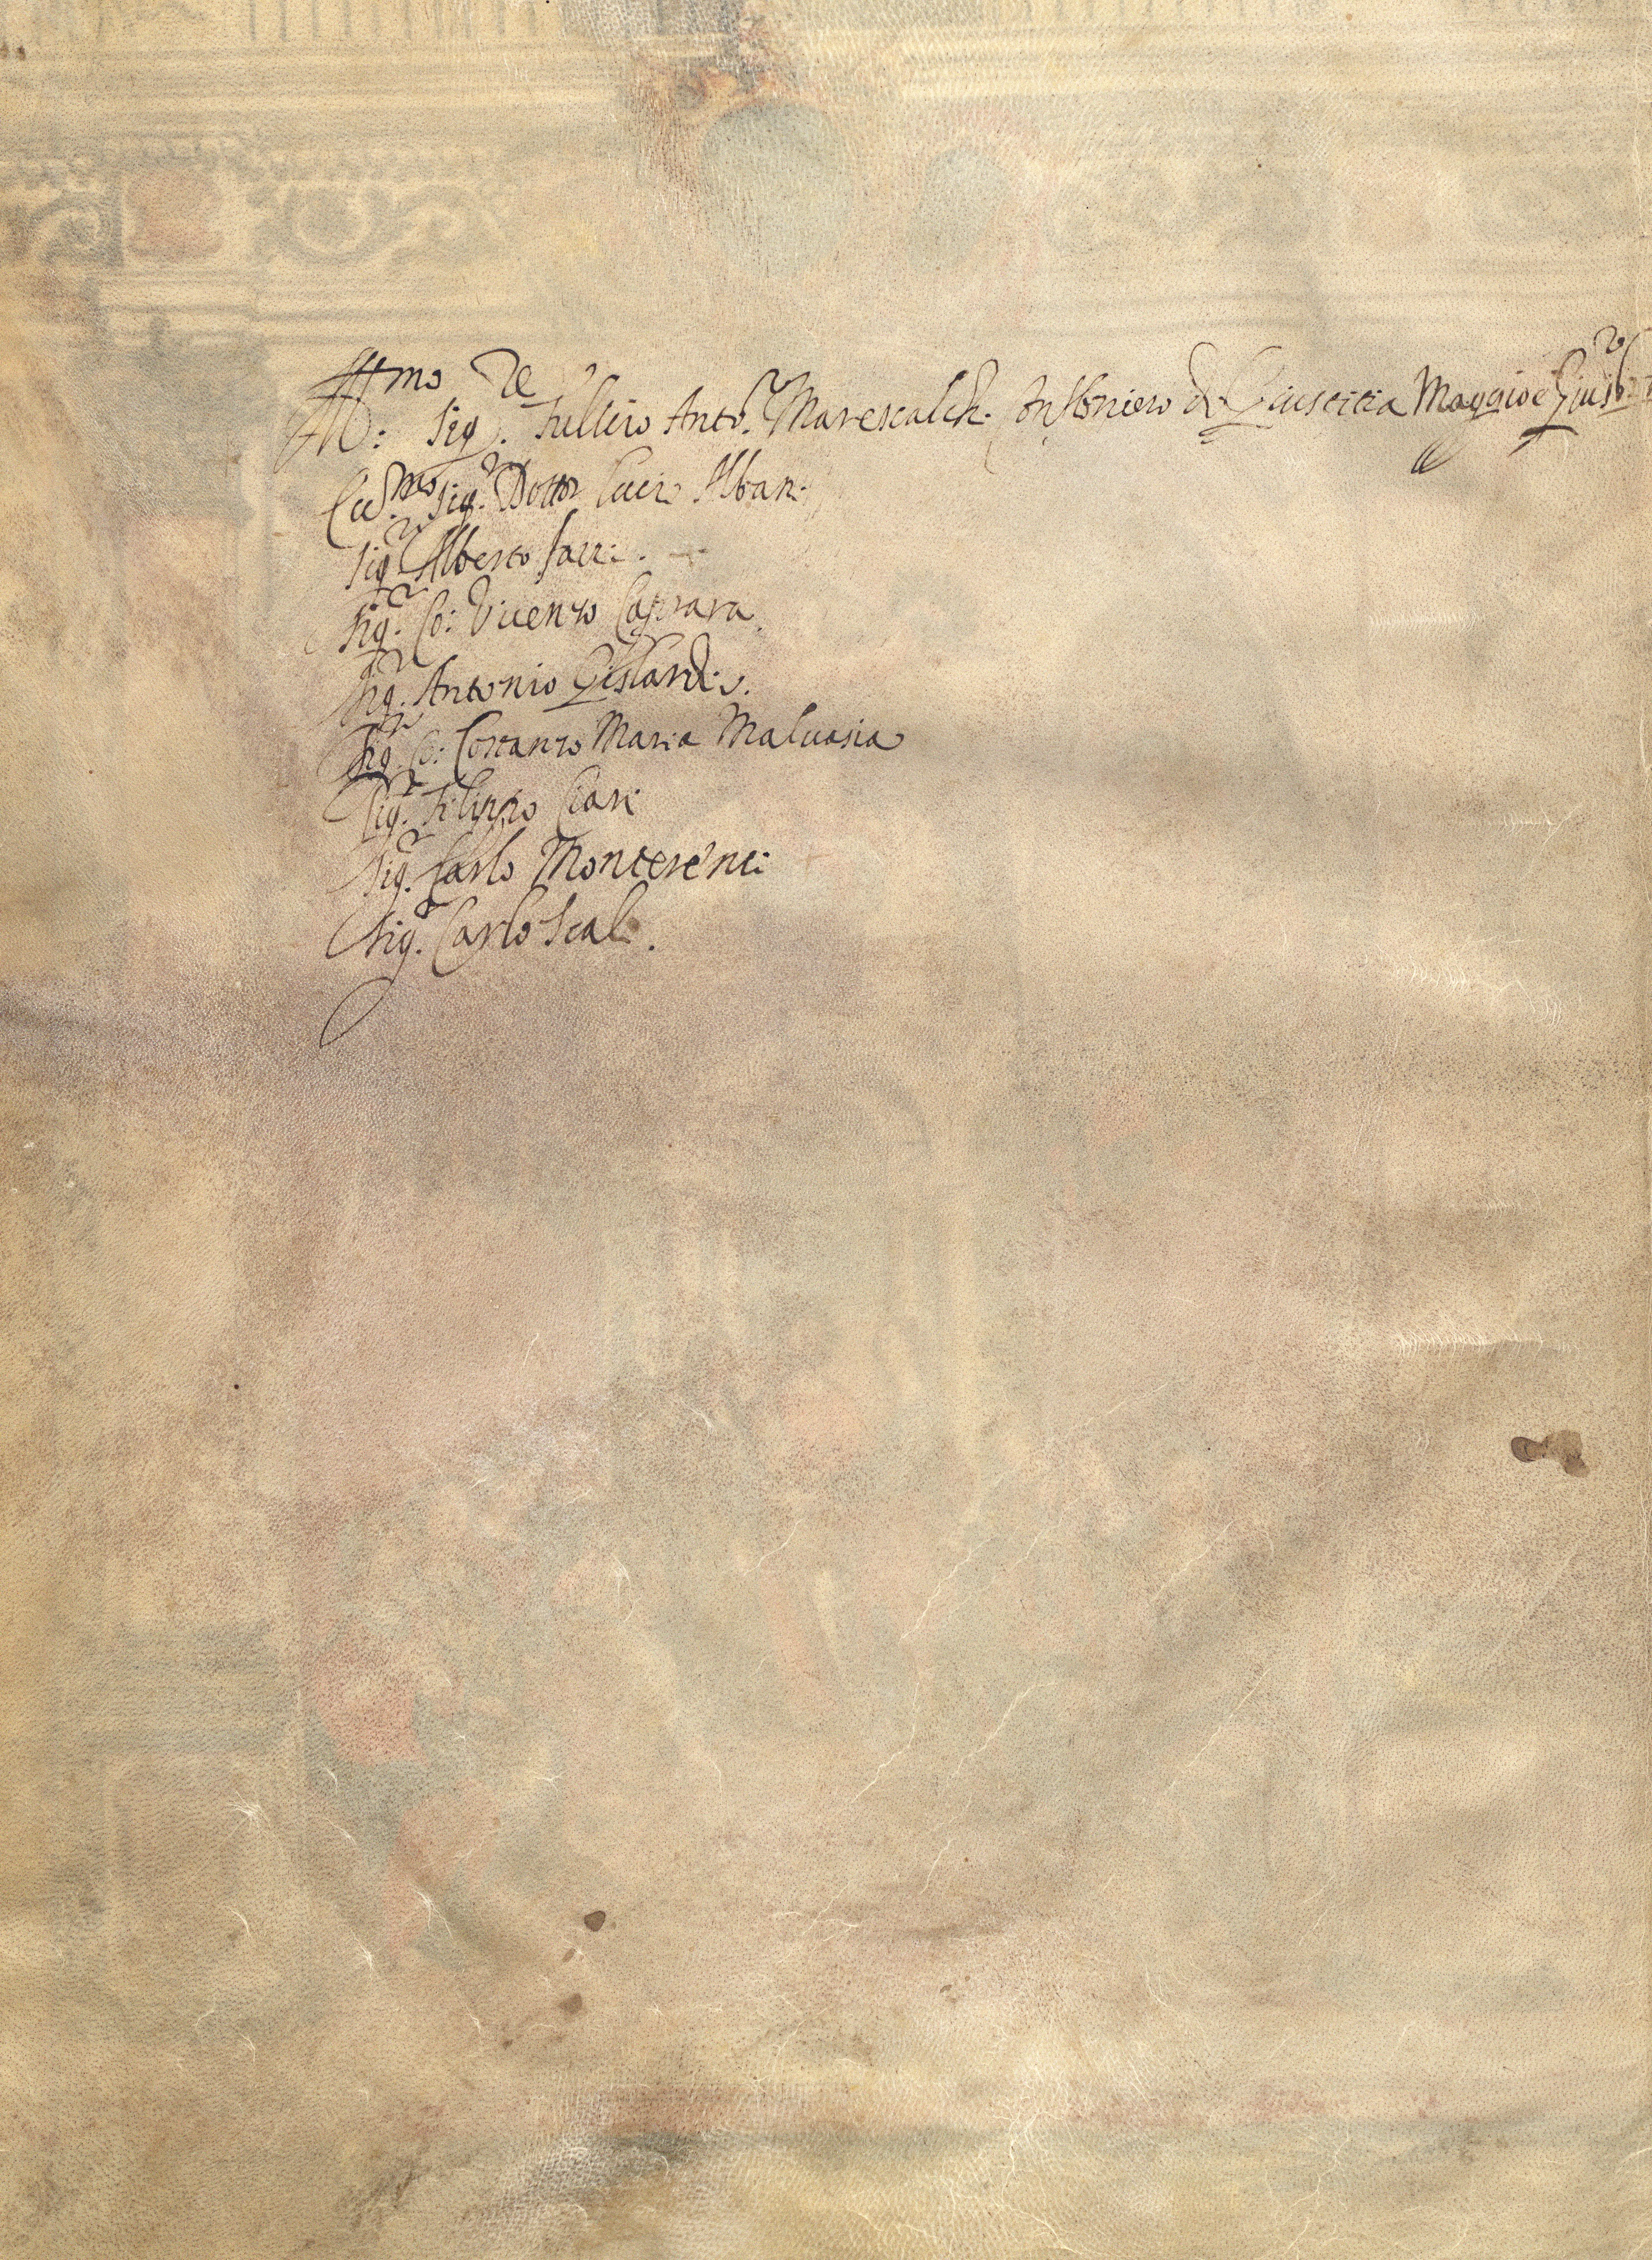 Ill.mo Sig.re Tullio Ant.o Marescalchi Confaloniero di Giustitia Maggio e Giug.o
Ecc.mo Sig.r Dottor Lucio Albani
Sig.r Alberto Sacci.
Sig.r Co: Vicenzo Caprara.
Sig.r Antonio Gislardi.
Sig.r Co: Costanzo Maria Malvasia
Sig.r Filippo Ciari
Sig.r Carlo Monterenti
Sig.r Carlo Scali.